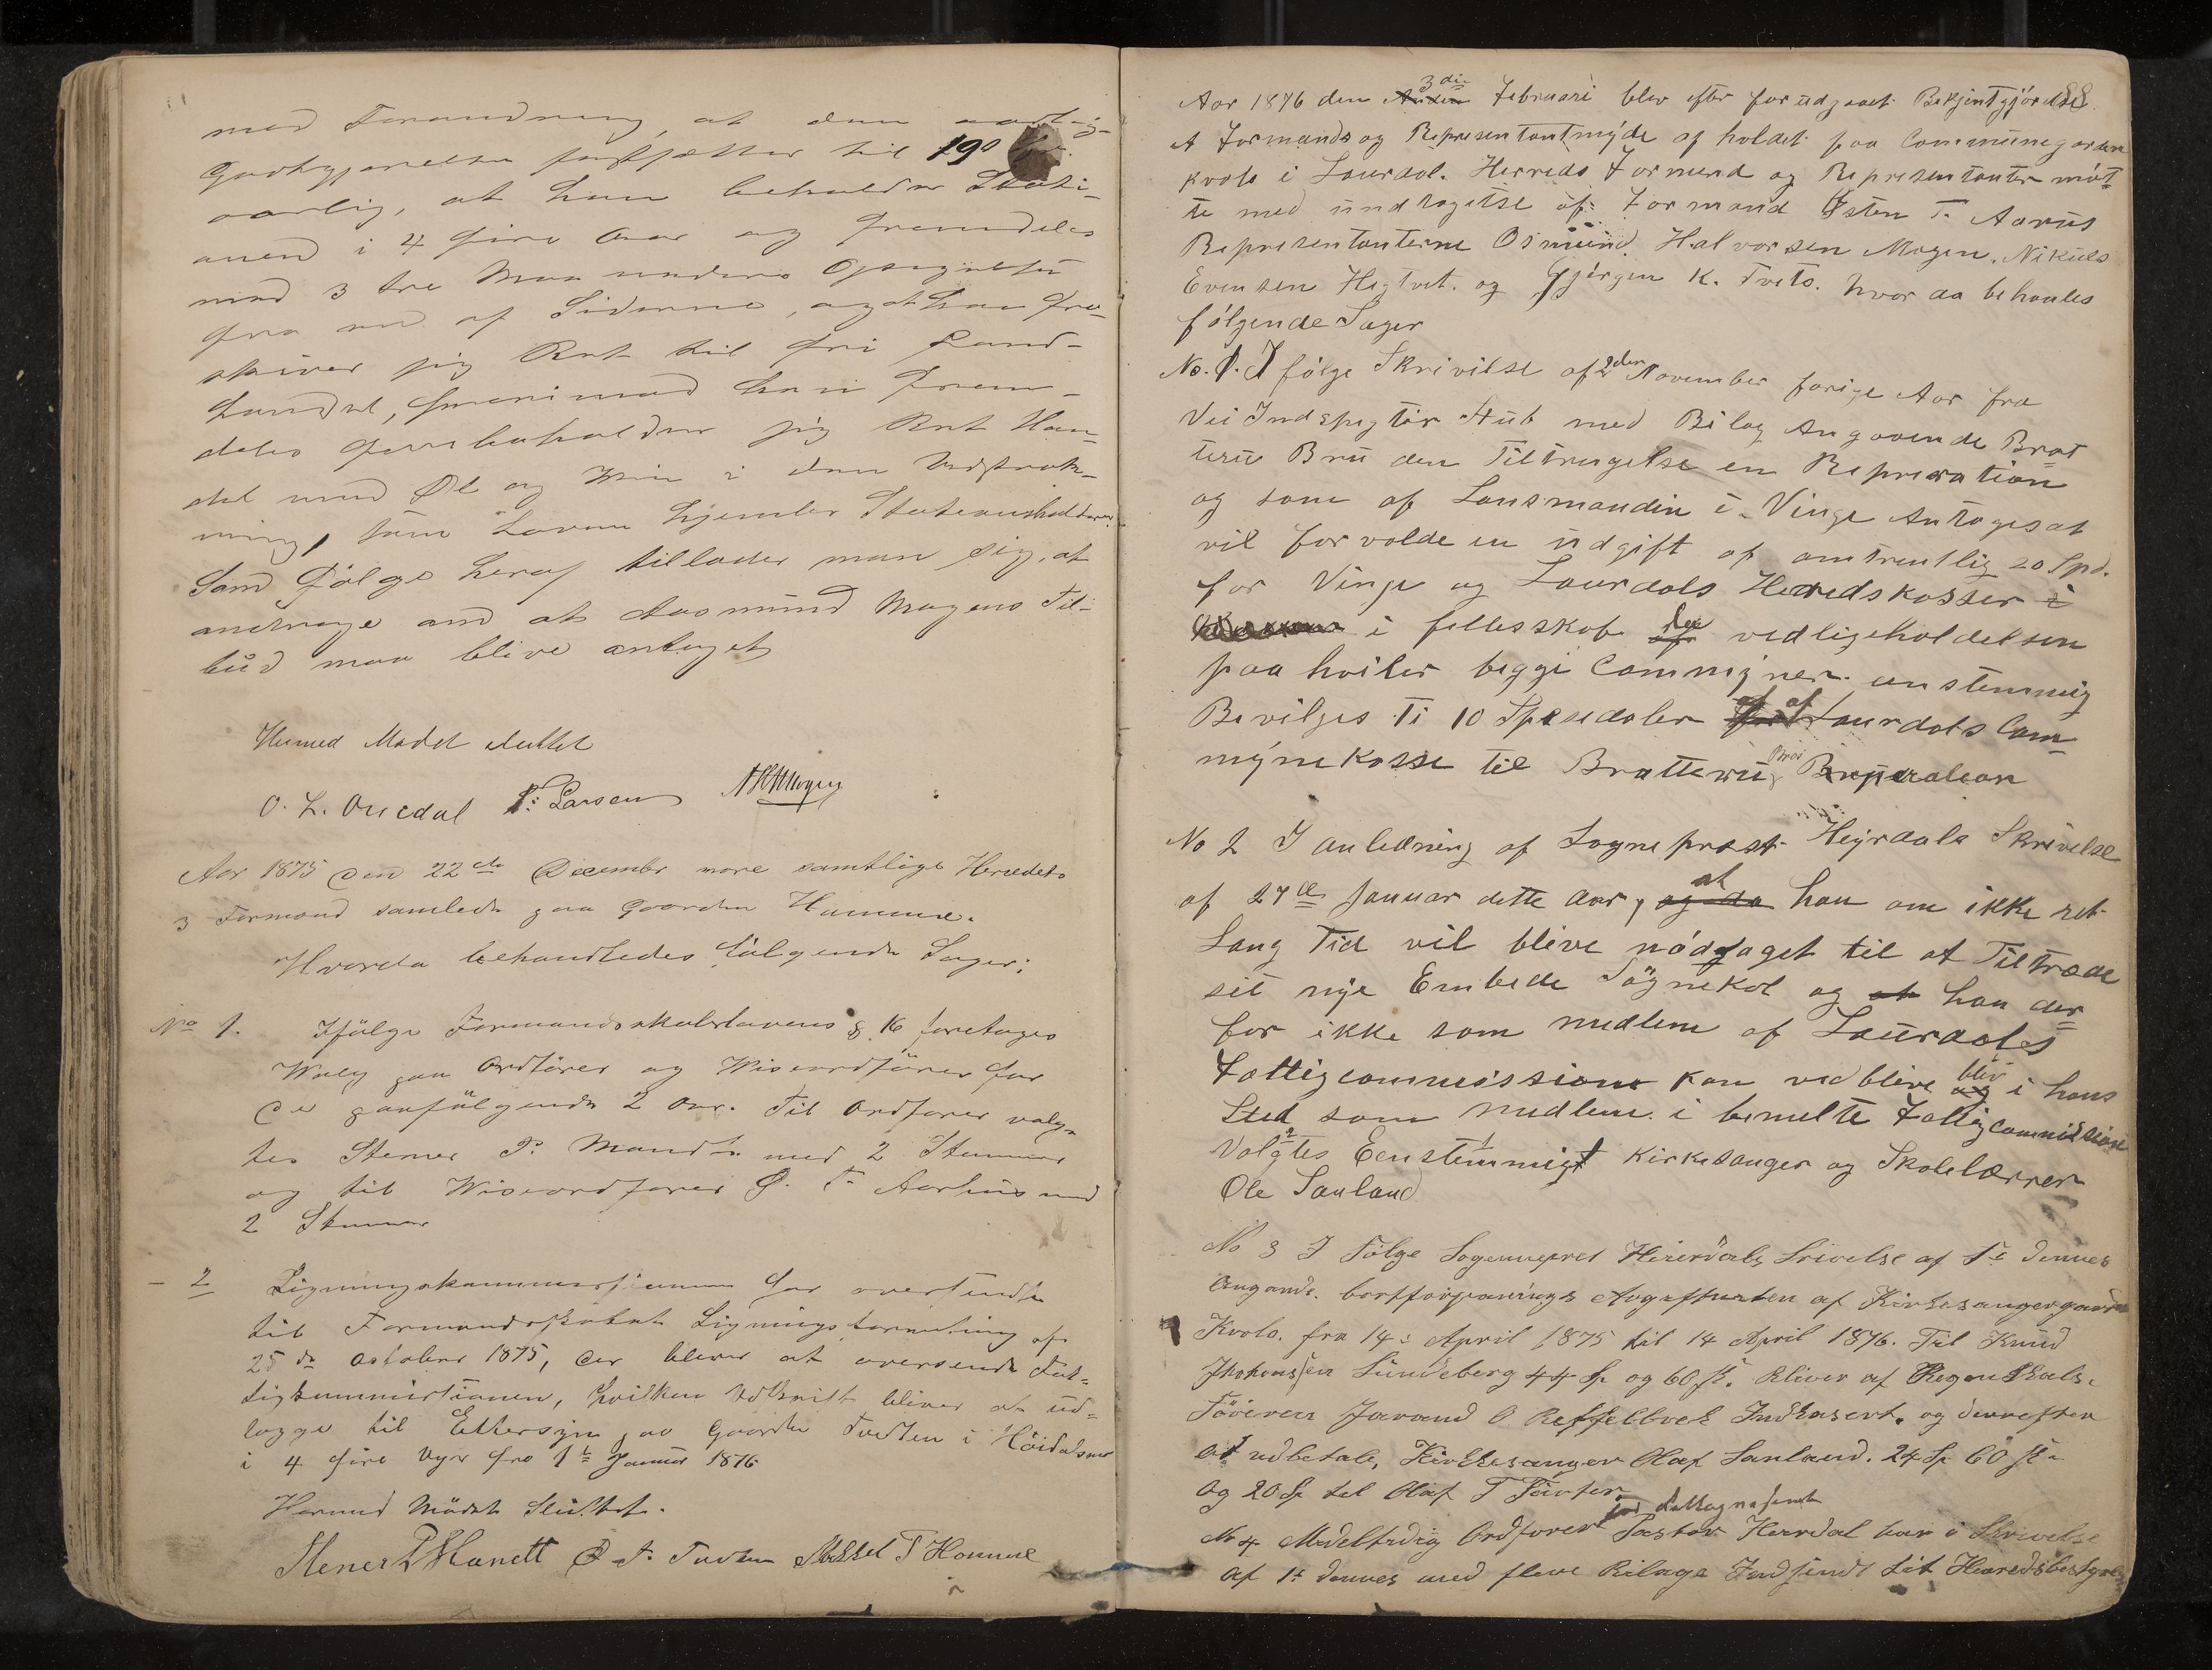 med Forandring, at den aarlig-
Godtgjørelse fastsættes til 190
aarlig, at han beholder Stati-
onen i 4 fire Aar og fremdeles
med 3 tre Maaneders Opsigelse
fra en af Siderne, og at han fra-
skiver sig Ret til fri Land-
handel, hvorimod han frem-
deles forbeholder sig Ret Han-
del med Øl og Vin i den Udstræk-
ning, som Loven hjemler Stationsholdere.
Som Følge heraf tillader man sig, at
andrage om at Aasmund Mogens Til-
bud maa blive antaget
Hermed Mødet sluttet
O. L. Ofredal P. Larsen
Aar 1875 den 22de December vare samtlige Herredets
3 Formænd samlede paa Gaarden Homme.
Hvorda behandledes følgende Sager:
No 1. Ifølge Formandsskabslovens § 16 foretoges
Valg paa Ordfører og Viseordfører for
de paafølgende 2 Aar. Til Ordfører valg-
tes Stener P. Mandt med 2 Stemmer
og til Viseordfører Ø. T. Aarhus med
2 Stemmer
- 2 Ligningskommissionen har oversendt
til Formandskabet Ligningsforretning af
25de October 1875, der bliver at oversende Fat-
tigkommissionen, hvilken Udskrift bliver at ud-
lægge til Eftersyn paa Gaarden Tveten i Høidalsmo
i 4 fire Uger fra 1te Januar 1876
Hermed Mødet Sluttet.
Stener P Mandt Ø. T. Mikkel T Homme
Aar 1876 den Anden 3die Februari blev efter forudgaaet Bekjentgjørelse
A Formands og Representantmøde af holdet paa Communegorden
Kvolo i Laurdal. Herreds Formend og Representanter møt-
te med undtagelse af: Formand Østen T. Aarus
Representanterne Osmund Halvorsen Mogen. Nikuls
Evensen Hegtvet. og Gjørgen K. Tveto. hvor da behanles
følgende Sager
No. 1. I følge Skrivilse af 2den November forige Aar fra
Vei Indspegtør Hub med Bilag Angaaende Brat
teru Bru den Tiltrengelse en Repreration
og som af Lensmanden i Vinge Antages at
vil forvolde en udgift af omtrentlig 20 Spd.
for Vinje og Laurdals Heredskasser i
i fellesskab da vedligeholdelsen
paa hviler begge Commyner. enstemmig
Bevilges Ti 10 Spesedaler af Laurdals Com-
mynekasse til Bratteru Broi Reperation
No 2 I anledning af Sogneprest Heyrdals Skrivelse
af 27de Januar dette Aar, og da at han om ikke ret
Lang Tid vil blive nødsaget til at Tiltræde
sit nye Embede Søgnekol og at han der
for ikke som medlem af Laurdals
Fattigcommission kan vedblive og blev i hans
Sted som medlem i bemelte Fattigcommission
Valgtes Eenstemmigt Kirkesanger og Skolelærrer
Ole Sanland
No 3 I Følge Sogneprest Heierdals Srivelse af 1ste dennes
Angaande. bortforpagtnings Avgefften af Kirkesangergaarden
Kvolo. fra 14: April 1875 til 14 April 1876. Til Knud
Jhohansen Sundeberg 44 Sp og 60 sk. bliver af Regnskabs.
Føreren Jarand O. Reffelbrek Indkasert. og derrefter
at udbetale, Kirkesanger Olaf Sanland. 24 Sp 60 sk
og 20 Sp til Olaf T
No 4 Mideltidig Ordforer Pastor Heirdal har i Skrivelse
af 1t dennes med flere Bilage Indsendt til Heredsbestyrel